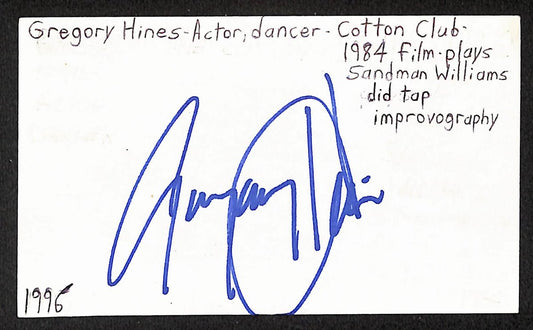 Gregory Hines-Actor, dancer - Cotton Club-
1984 film-plays
Sandman Williams
did tap
improvography
Gregory Hines
1996